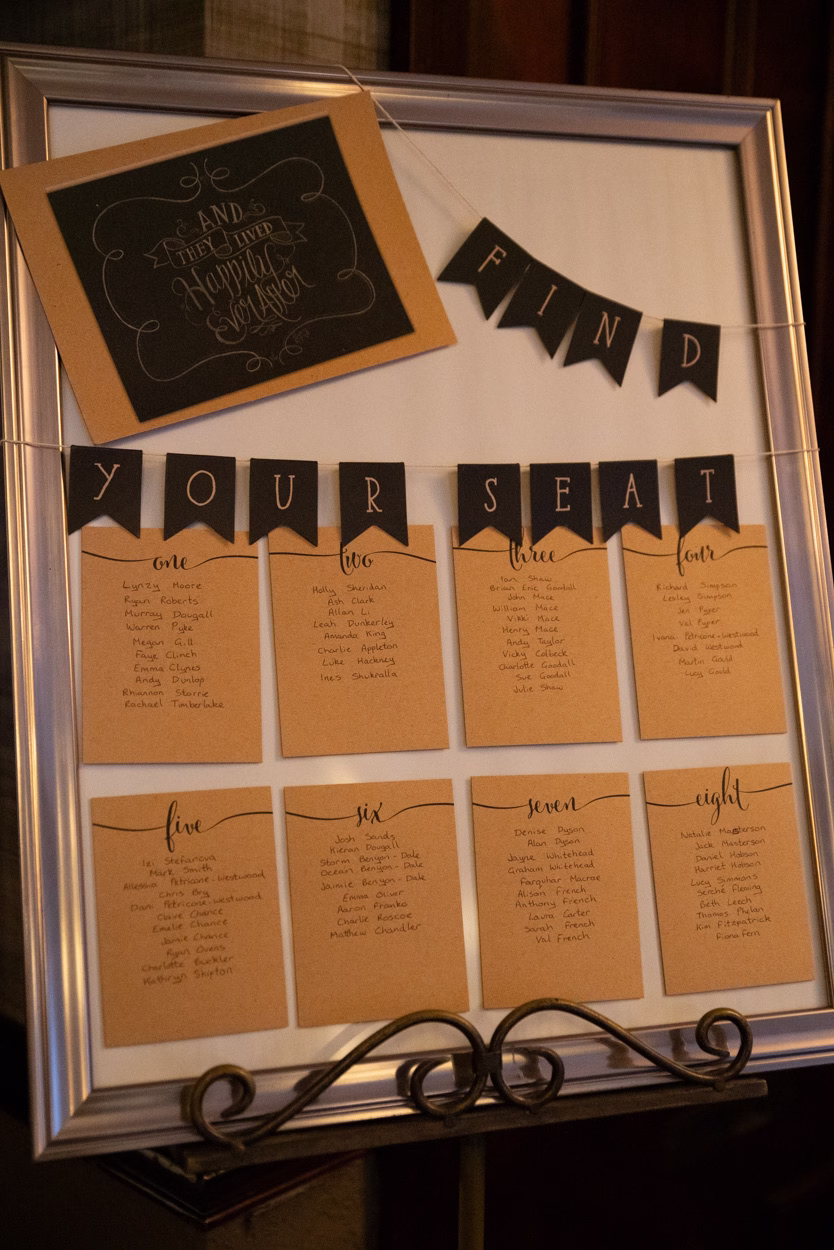 AND
THEY LIVED
Happily
Ever After
FIND
YOUR SEAT
one
Lynzy Moore
Ryan Roberts
Murray Dougall
Warren Pyke
Megan Gill
Faye Clinch
Emma Clynes
Andy Dunlop
Rhiannon Storrie
Rachael Timberlake
two
Holly Sheridan
Ash Clark
Allan Li
Leah Dunkerley
Amanda King
Charlie Appleton
Luke Hackney
Ines Shukralla
three
Ian Shaw
Brian Eric Goodall
John Mace
William Mace
Vikki Mace
Henry Mace
Andy Taylor
Vicky Colbeck
Charlotte Goodall
Sue Goodall
Julie Shaw
four
Richard Simpson
Lesley Simpson
Jen Pyper
Val Pyper
Petricone-Westwood
David Westwood
Martin Gould
Lucy Gould
five
Stefanova
Mark Smith
Petricone-Westwood
Chris Bry
Dani Petricone-Westwood
Claire Chance
Emelie Chance
Jamie Chance
Ryan Owens
Charlotte Buckler
Kathryn Shipton
six
Josh Sands
Kieran Dougall
Storm Benyon-Dale
Ocean Benyon-Dale
Jaimie Benyon-Dale
Emma Oliver
Aaron Franks
Charlie Roscoe
Matthew Chandler
seven
Denise Dyson
Alan Dyson
Jayne Whitehead
Graham Whitehead
Farquhar Macrae
Alison French
Anthony French
Laura Carter
Sarah French
Val French
eight
Natalie Masterson
Jack Masterson
Daniel Hobson
Harriet Hobson
Lucy Simmons
Fleming
Beth Leech
Thomas Phelan
Kim Fitzpatrick
Fiona Fern